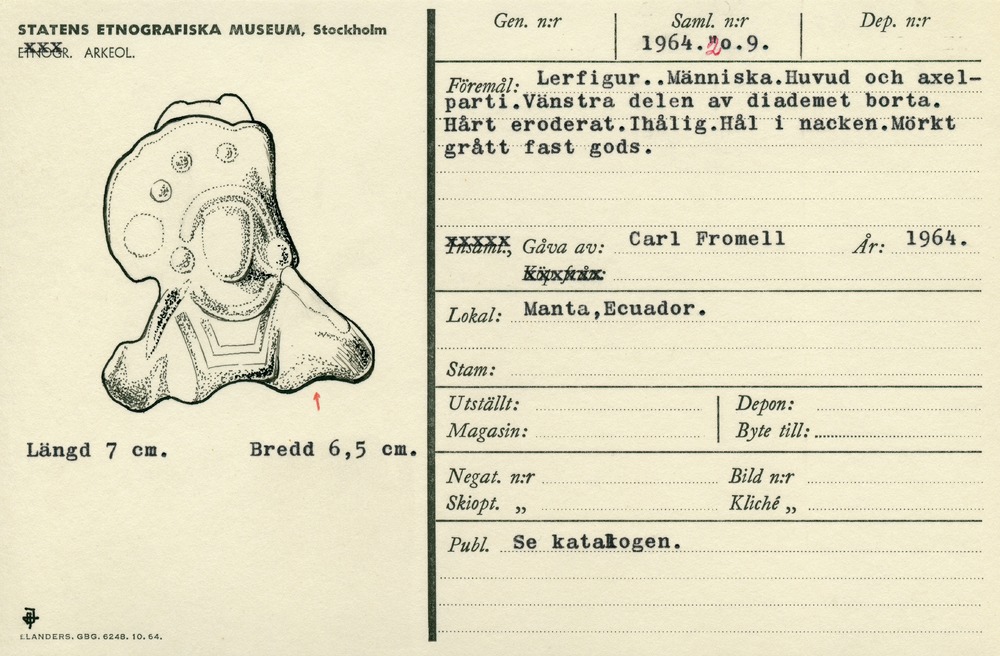 STATENS ETNOGRAFISKA MUSEUM, Stockholm
ETNOGR. ARKEOL.
Längd 7 cm. Bredd 6,5 cm.
ELANDERS. GBG. 6248. 10. 64.
Gen. n:r Saml. n:r Dep. n:r
1964.20.9.
Föremål: Lerfigur..Människa.Huvud och axel-
parti.Vänstra delen av diademet borta.
Hårt eroderat.Ihålig.Hål i nacken.Mörkt
grått fast gods.
Insaml., Gåva av: Carl Fromell År: 1964.
Lokal: Manta,Ecuador.
Stam:
Utställt: Depon:
Magasin: Byte till:
Negat. n:r Bild n:r
Skiopt. „ Kliché „
Publ. Se katalogen.